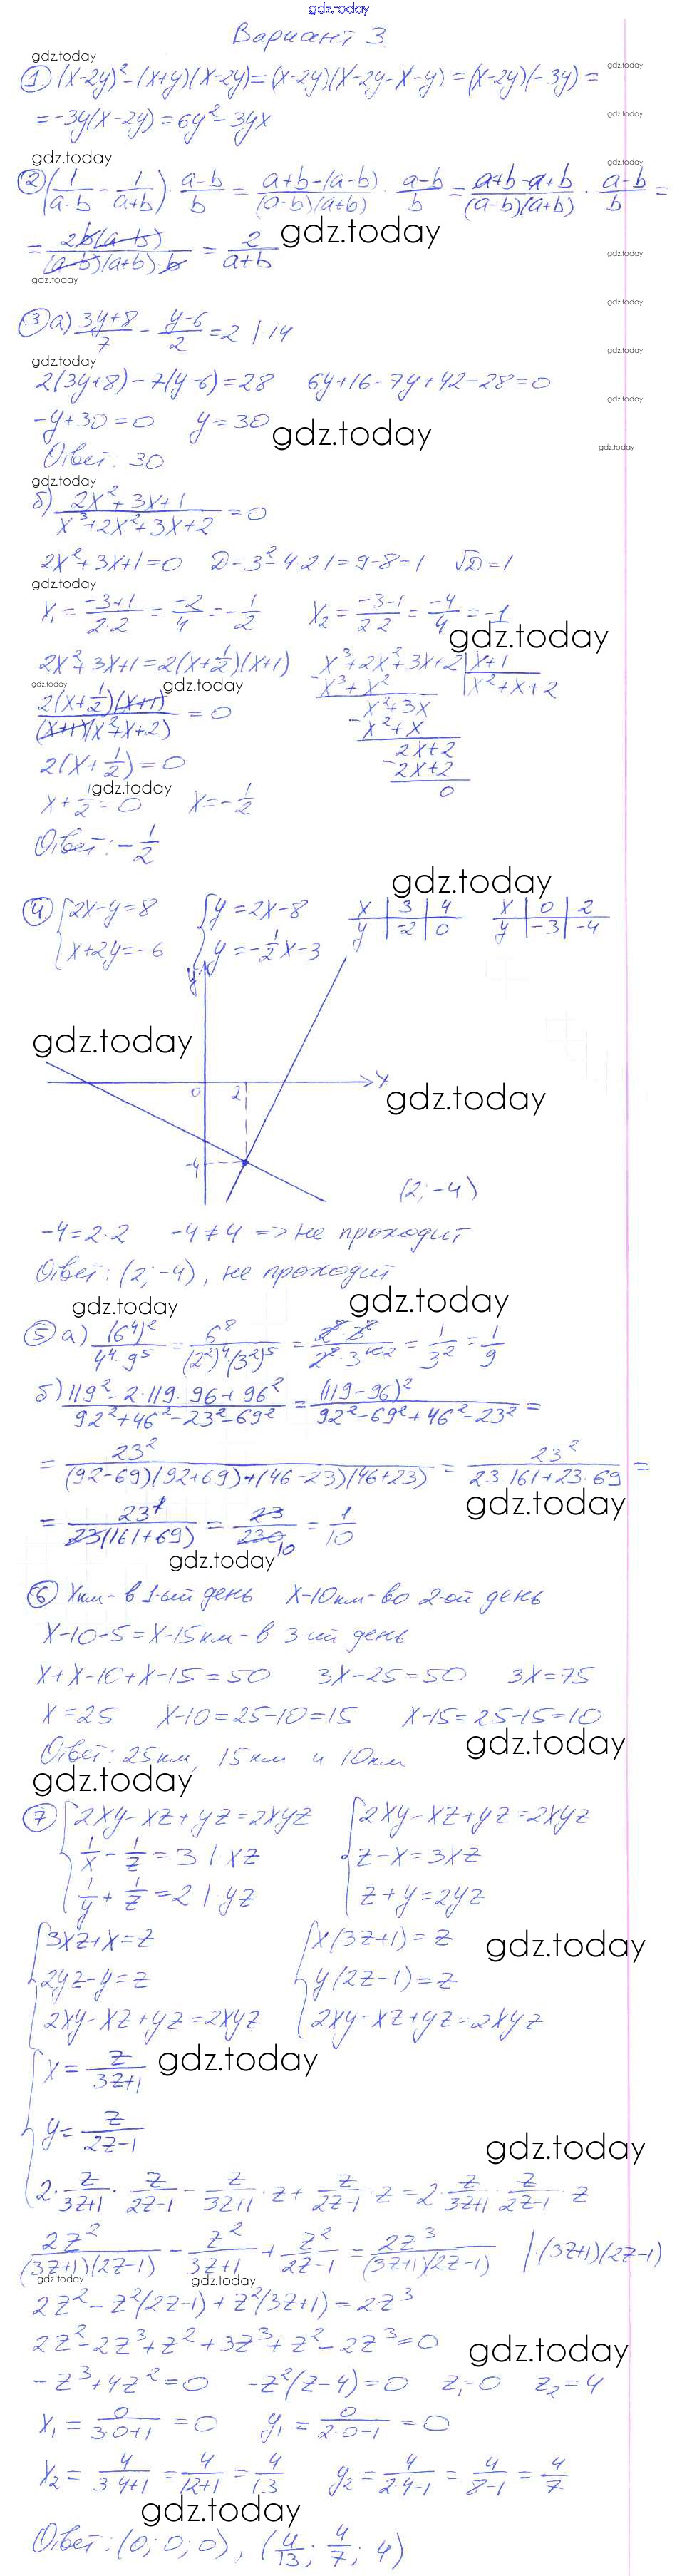 gdz.today
Вариант 3
gdz.today
gdz.today
① (x-2y)²-(x+y)(x-2y)=(x-2y)(x-2y-x-y)=(x-2y)(-3y)=
=-3y(x-2y)=6y²-3yx
gdz.today
gdz.today
gdz.today
② (1/(a-b) - 1/(a+b)) · (a-b)/b = (a+b-(a-b))/((a-b)(a+b)) · (a-b)/b = (a+b-a+b)/((a-b)(a+b)) · (a-b)/b =
gdz.today
= 2b(a-b)/((a-b)(a+b)·b) = 2/(a+b)
gdz.today
gdz.today
gdz.today
gdz.today
③ а) (3y+8)/7 - (y-6)/2 = 2 | 14
gdz.today
gdz.today
2(3y+8)-7(y-6)=28 6y+16-7y+42-28=0
gdz.today
-y+30=0 y=30
gdz.today
gdz.today
Ответ: 30
gdz.today
б) (2x²+3x+1)/(x³+2x²+3x+2) = 0
2x²+3x+1=0 D=3²-4·2·1=9-8=1 √D=1
gdz.today
x₁ = (-3+1)/(2·2) = -2/4 = -1/2 x₂ = (-3-1)/(2·2) = -4/4 = -1
gdz.today
2x²+3x+1=2(x+1/2)(x+1) x³+2x²+3x+2 | x+1
gdz.today
gdz.today
x³+x² x²+x+2
2(x+1/2)(x+1)/((x+1)(x²+x+2)) = 0 x²+3x
x²+x
2(x+1/2)=0 2x+2
2x+2
gdz.today
x+1/2=0 x=-1/2 0
Ответ: -1/2
gdz.today
④ {2x-y=8 {y=2x-8 x | 3 | 4 x | 0 | 2
{x+2y=-6 {y=-1/2x-3 y | -2 | 0 y | -3 | -4
y
gdz.today
x
0 2
gdz.today
-4
(2; -4)
-4=2·2 -4≠4 => не проходит
Ответ: (2; -4), не проходит
gdz.today
gdz.today
⑤ а) (6⁴)²/(4⁴·9⁵) = 6⁸/((2²)⁴(3²)⁵) = 2⁸·3⁸/(2⁸·3¹⁰ 2) = 1/3² = 1/9
б) (119²-2·119·96+96²)/(92²+46²-23²-69²) = (119-96)²/(92²-69²+46²-23²) =
= 23²/((92-69)(92+69)+(46-23)(46+23)) = 23²/(23·161+23·69) =
gdz.today
= 23²/(23(161+69)) = 23/230 10 = 1/10
gdz.today
⑥ xкм - в 1-ый день x-10км - во 2-ой день
x-10-5=x-15км - в 3-ий день
x+x-10+x-15=50 3x-25=50 3x=75
x=25 x-10=25-10=15 x-15=25-15=10
gdz.today
Ответ: 25км, 15км и 10км
gdz.today
⑦ {2xy-xz+yz=2xyz {2xy-xz+yz=2xyz
{1/x - 1/z = 3 | xz {z-x=3xz
{1/y + 1/z = 2 | yz {z+y=2yz
{3xz+x=z {x(3z+1)=z
gdz.today
{2yz-y=z {y(2z-1)=z
{2xy-xz+yz=2xyz {2xy-xz+yz=2xyz
{x = z/(3z+1)
gdz.today
{y = z/(2z-1)
gdz.today
{2· z/(3z+1) · z/(2z-1) - z/(3z+1) · z + z/(2z-1) · z = 2· z/(3z+1) · z/(2z-1) · z
2z²/((3z+1)(2z-1)) - z²/(3z+1) + z²/(2z-1) = 2z³/((3z+1)(2z-1)) |·(3z+1)(2z-1)
gdz.today
gdz.today
2z²-z²(2z-1)+z²(3z+1)=2z³
2z²-2z³+z²+3z³+z²-2z³=0
gdz.today
-z³+4z²=0 -z²(z-4)=0 z₁=0 z₂=4
x₁ = 0/(3·0+1) = 0 y₁ = 0/(2·0-1) = 0
x₂ = 4/(3·4+1) = 4/(12+1) = 4/13 y₂ = 4/(2·4-1) = 4/(8-1) = 4/7
gdz.today
Ответ: (0; 0; 0), (4/13; 4/7; 4)